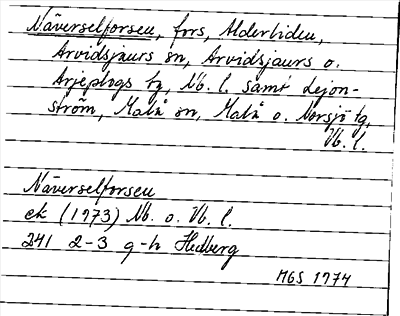 Näverselforsen, fors, Alderliden,
Arvidsjaurs sn, Arvidsjaurs o.
Arjeplogs tg, Nb. l. samt Lejon-
ström, Malå sn, Malå o. Norsjö tg,
Vb. l.
Näverselforsen
ek (1973) Nb. o. Vb. l.
241 2-3 g-h Hedberg
MGS 1974